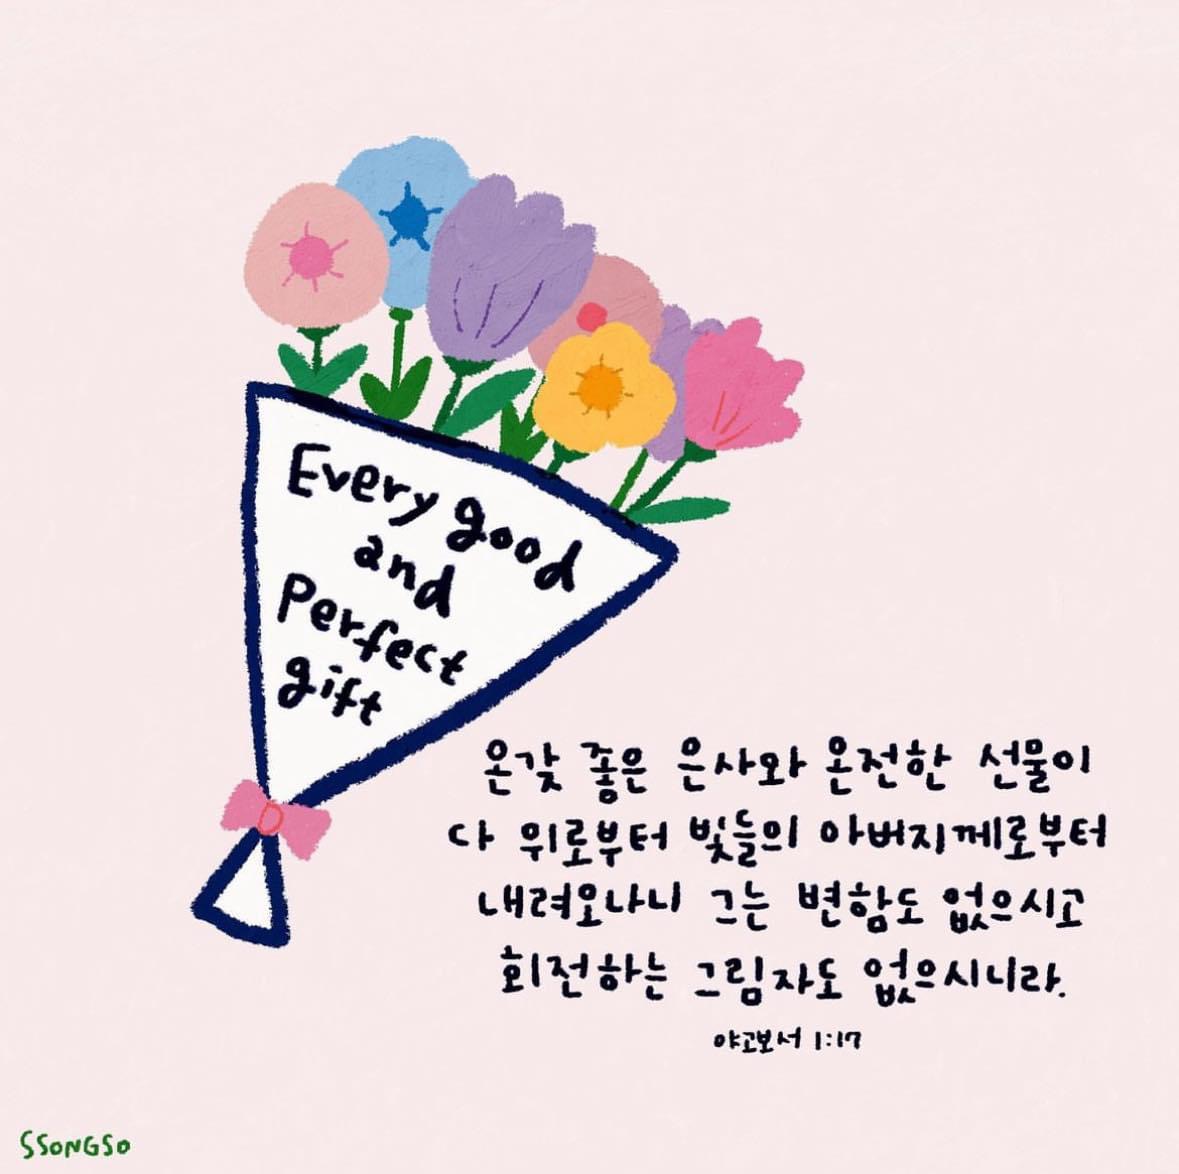 Every good
and
Perfect
gift
온갖 좋은 은사와 온전한 선물이
다 위로부터 빛들의 아버지께로부터
내려오나니 그는 변함도 없으시고
회전하는 그림자도 없으시니라.
야고보서 1:17
SSONGSO